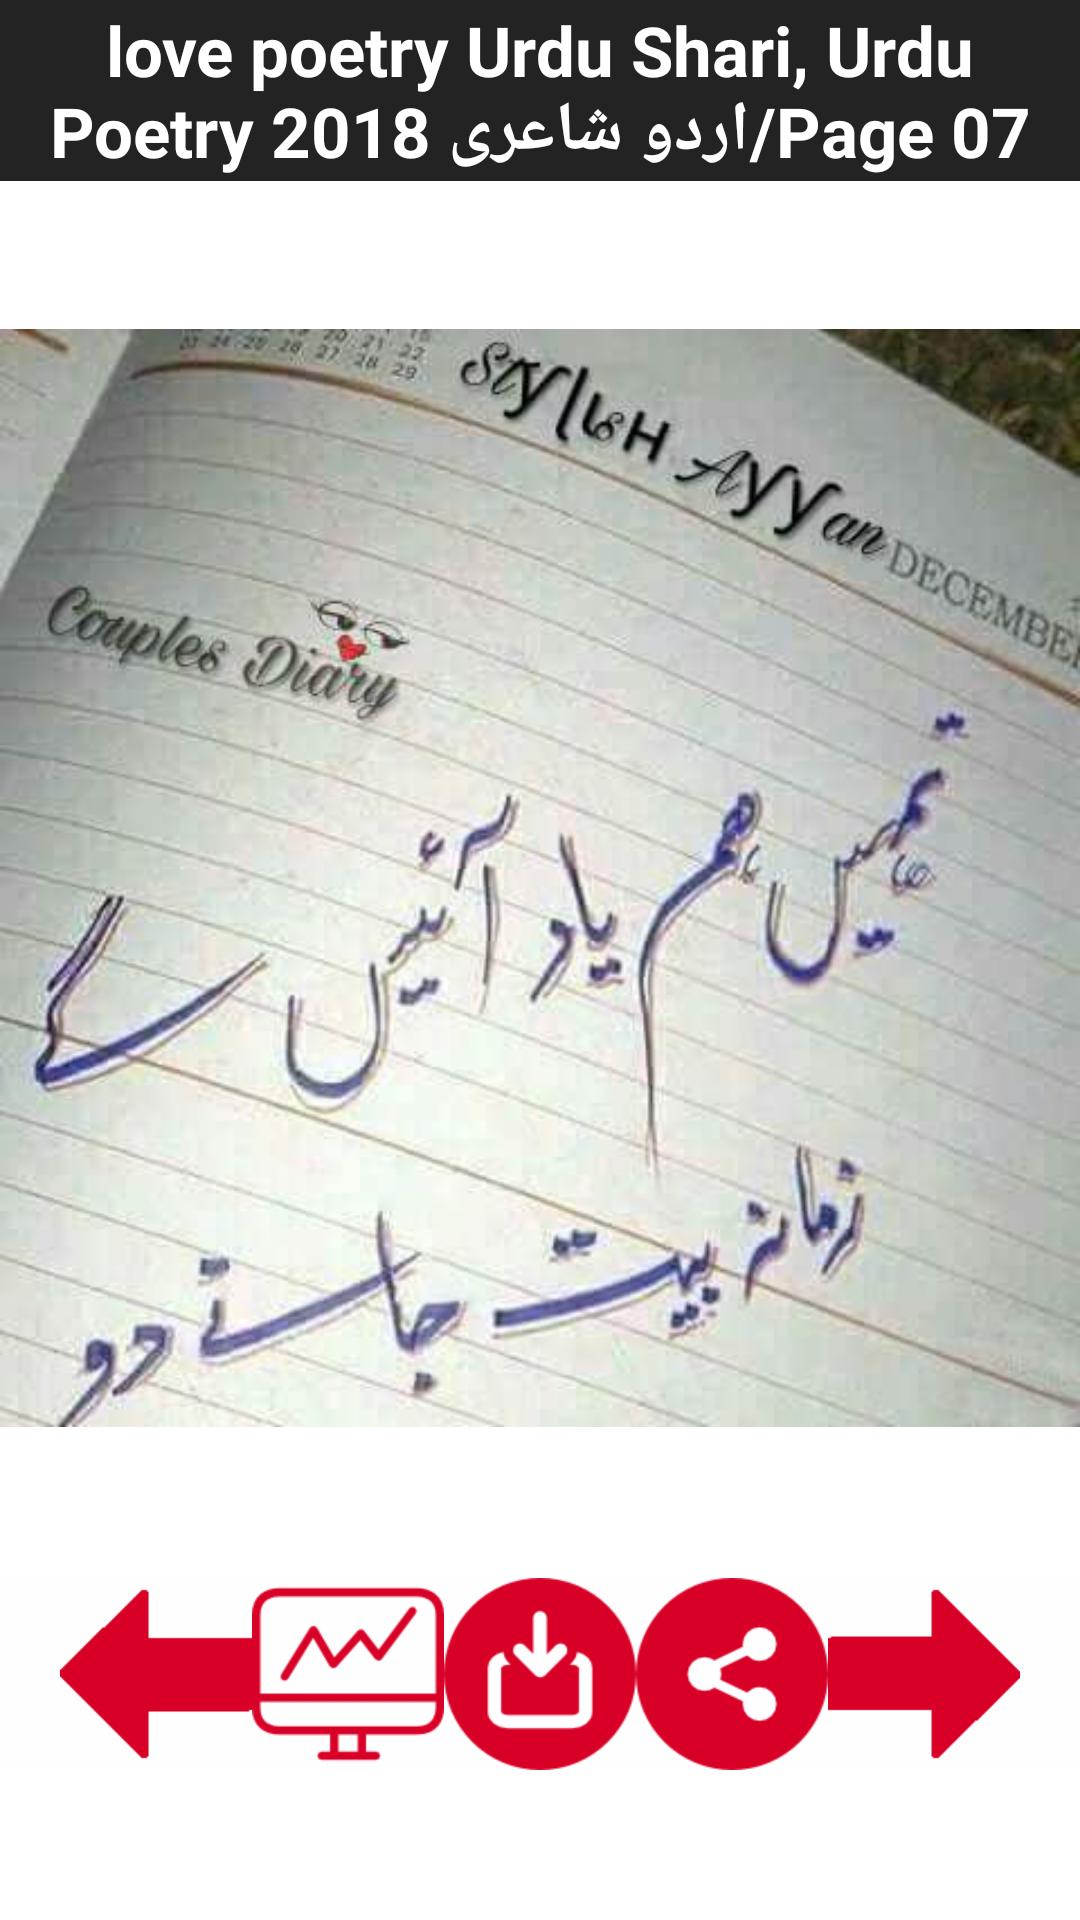 love poetry Urdu Shari, Urdu
Poetry 2018 اردو شاعری/Page 07
20 21
23 24 25 26 27 28 29
22
Stylish Ayyan
DECEMBER
Couples Diary
تمہیں ہم یاد آئیں گے
زمانہ بیت جانے دو